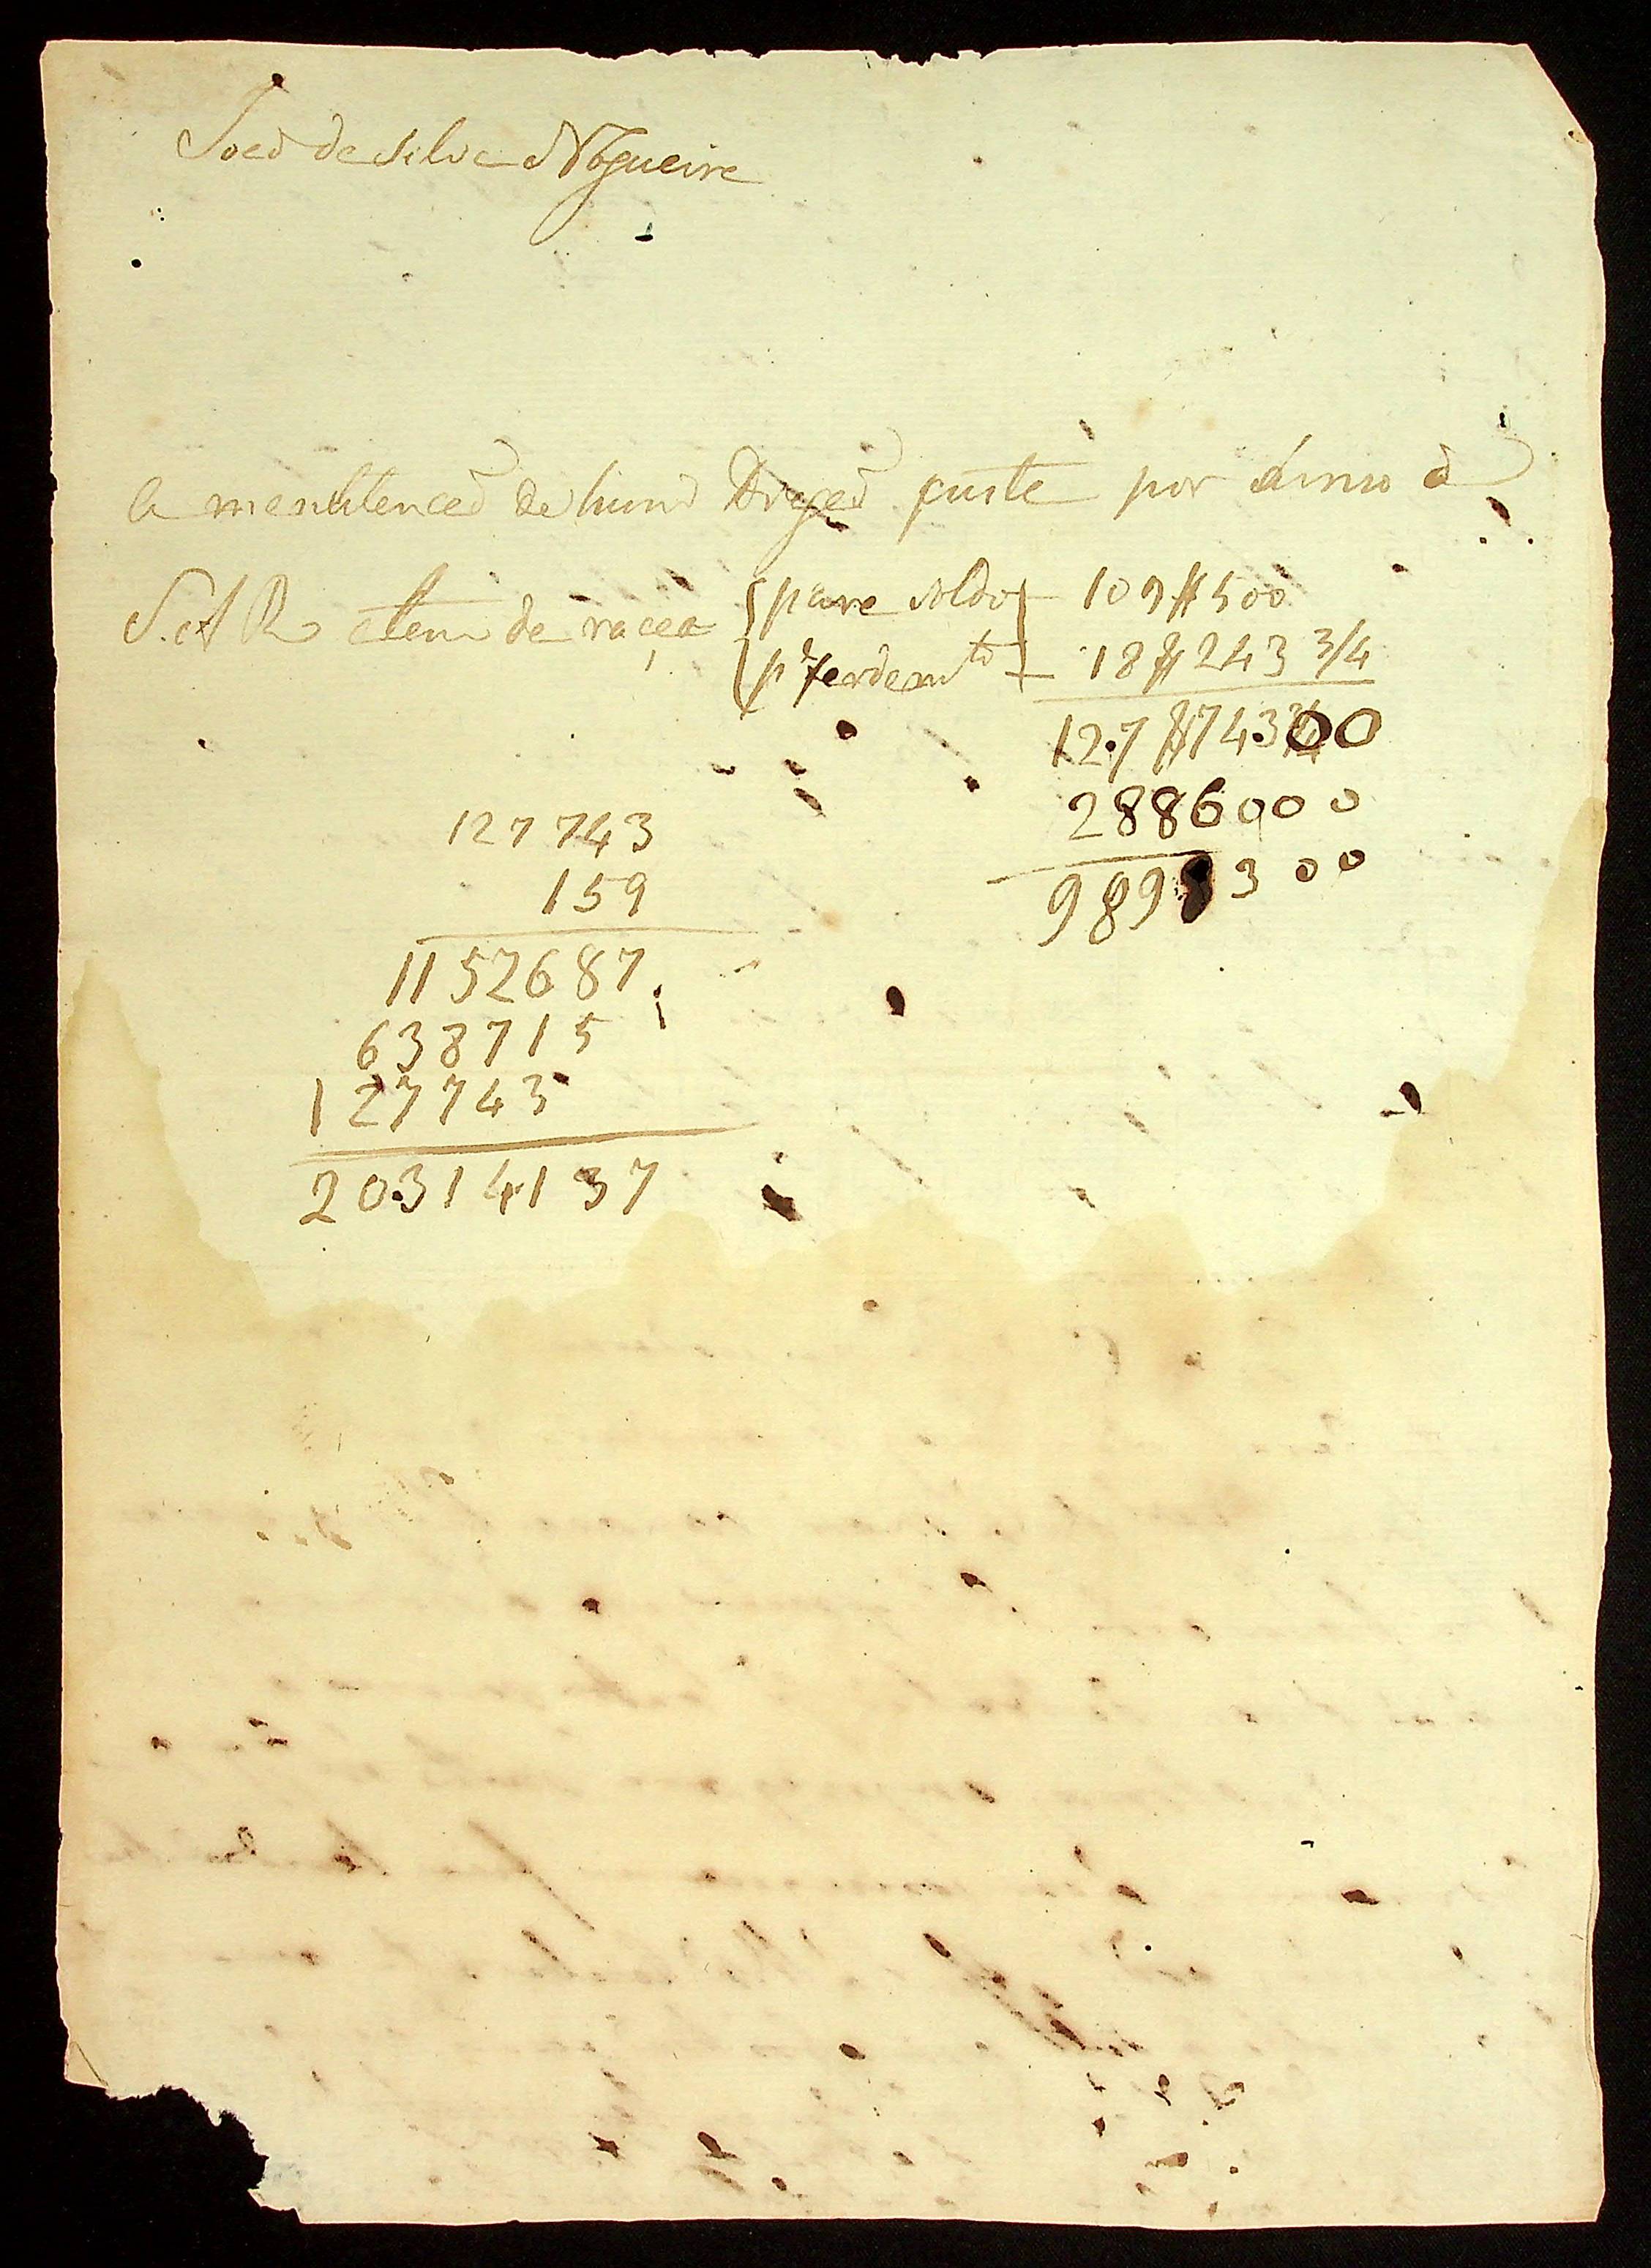 Joaõ da Silva Nogueira
A manutençaõ de hum Dragaõ custa por ánno a
S. A R alem da raçaõ { para soldo } 109$500
{ pª fardamto } 18$243 3/4
127$743 3/4 00
2886000
989 300
127743
159
1152687
638715
127743
20314137